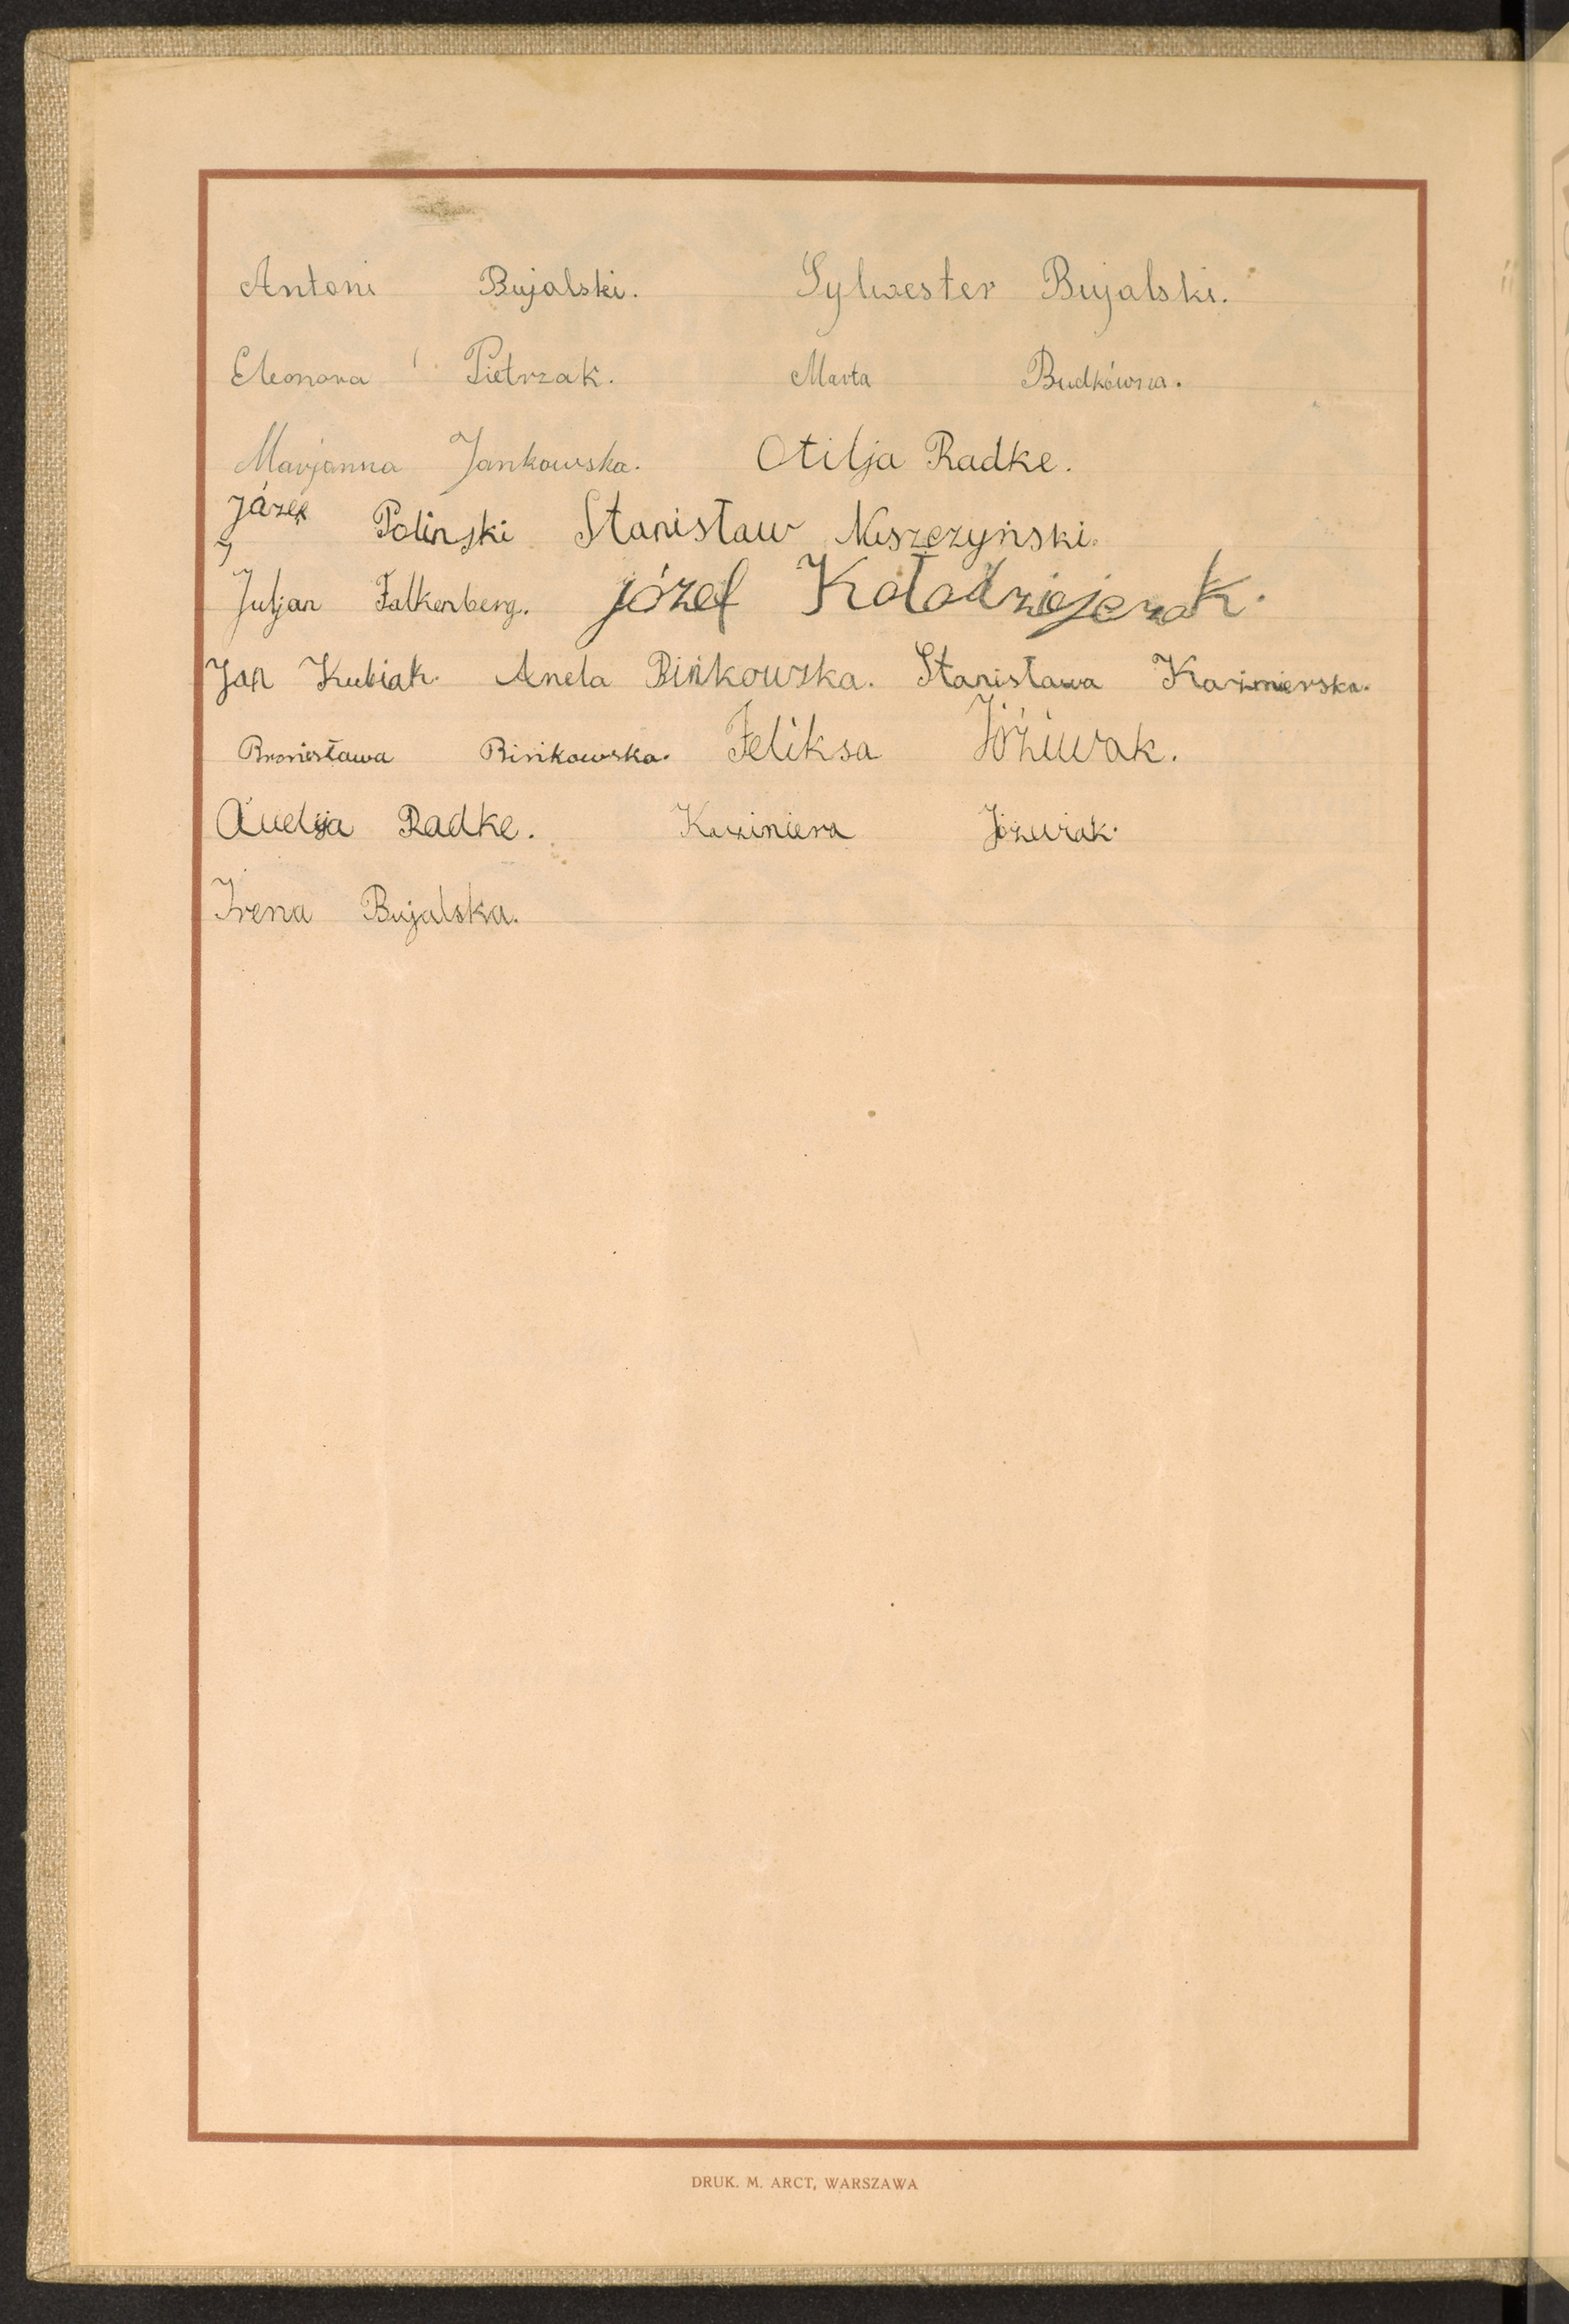 Antoni Bujalski. Sylwester Bujalski.
Eleonora Pietrzak. Marta Budkówna.
Marjanna Jankowska. Otilja Radke.
Józef Polinski Stanisław Niszczyński.
Juljan Falkenberg. józef Kołodziejczak.
Jan Kubiak. Anela Bińkowska. Stanisława Kazimierska.
Bronisława Bińkowska. Feliksa Jóźwiak.
Radke. Kazimiera Jóźwiak.
Irena Bujalska.
DRUK. M. ARCT, WARSZAWA